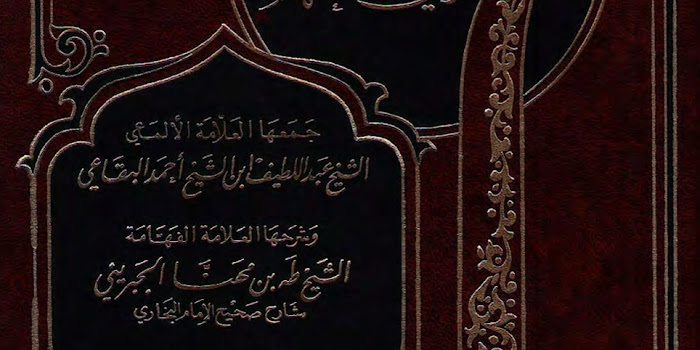 جَمَعَهَا العَلّامَة الألمَعي
الشيخ عبد اللطيف ابن الشيخ أحمد البقاعي
وَشَرَحَهَا العَلامَة الفَهّامَة
الشيخ طه بن مهنَّا الجبريني
شارح صَحيْح الإمَام البخاري